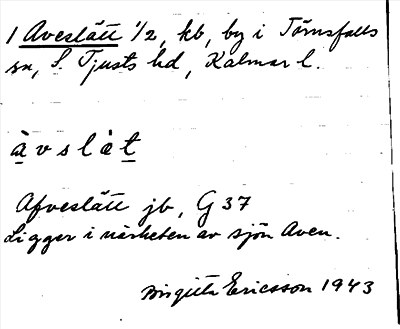 1 Aveslätt 1/2, kb, by i Törnsfalls
sn, S. Tjusts hd, Kalmar l.
àvslèt
Afveslätt jb, G 37
Ligger i närheten av sjön Aven.
Birgitta Ericsson 1943